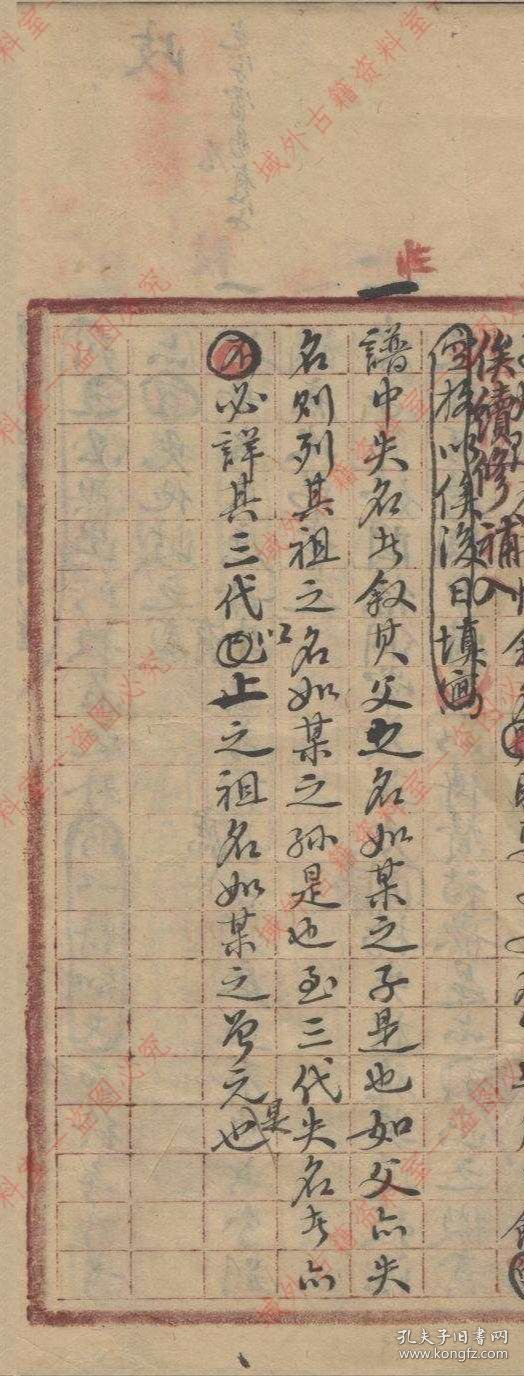 俟續修補入
空格以俟後日填寫
譜中失名者叙其父之名如某之子是也如父亦失
名则列其祖之名如某之孫是也至三代失名者亦
不必詳其三代以上之祖名如某之曾元是也
孔夫子旧书网
www.kongfz.com
域外古籍资料室--盗图必究